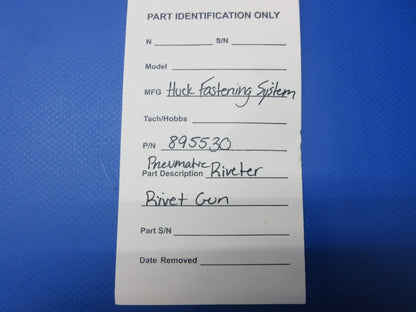 PART IDENTIFICATION ONLY
N S/N
Model
MFG Huck Fastening System
Tach/Hobbs
P/N 895530
Pneumatic
Part Description Riveter
Rivet Gun
Part S/N
Date Removed